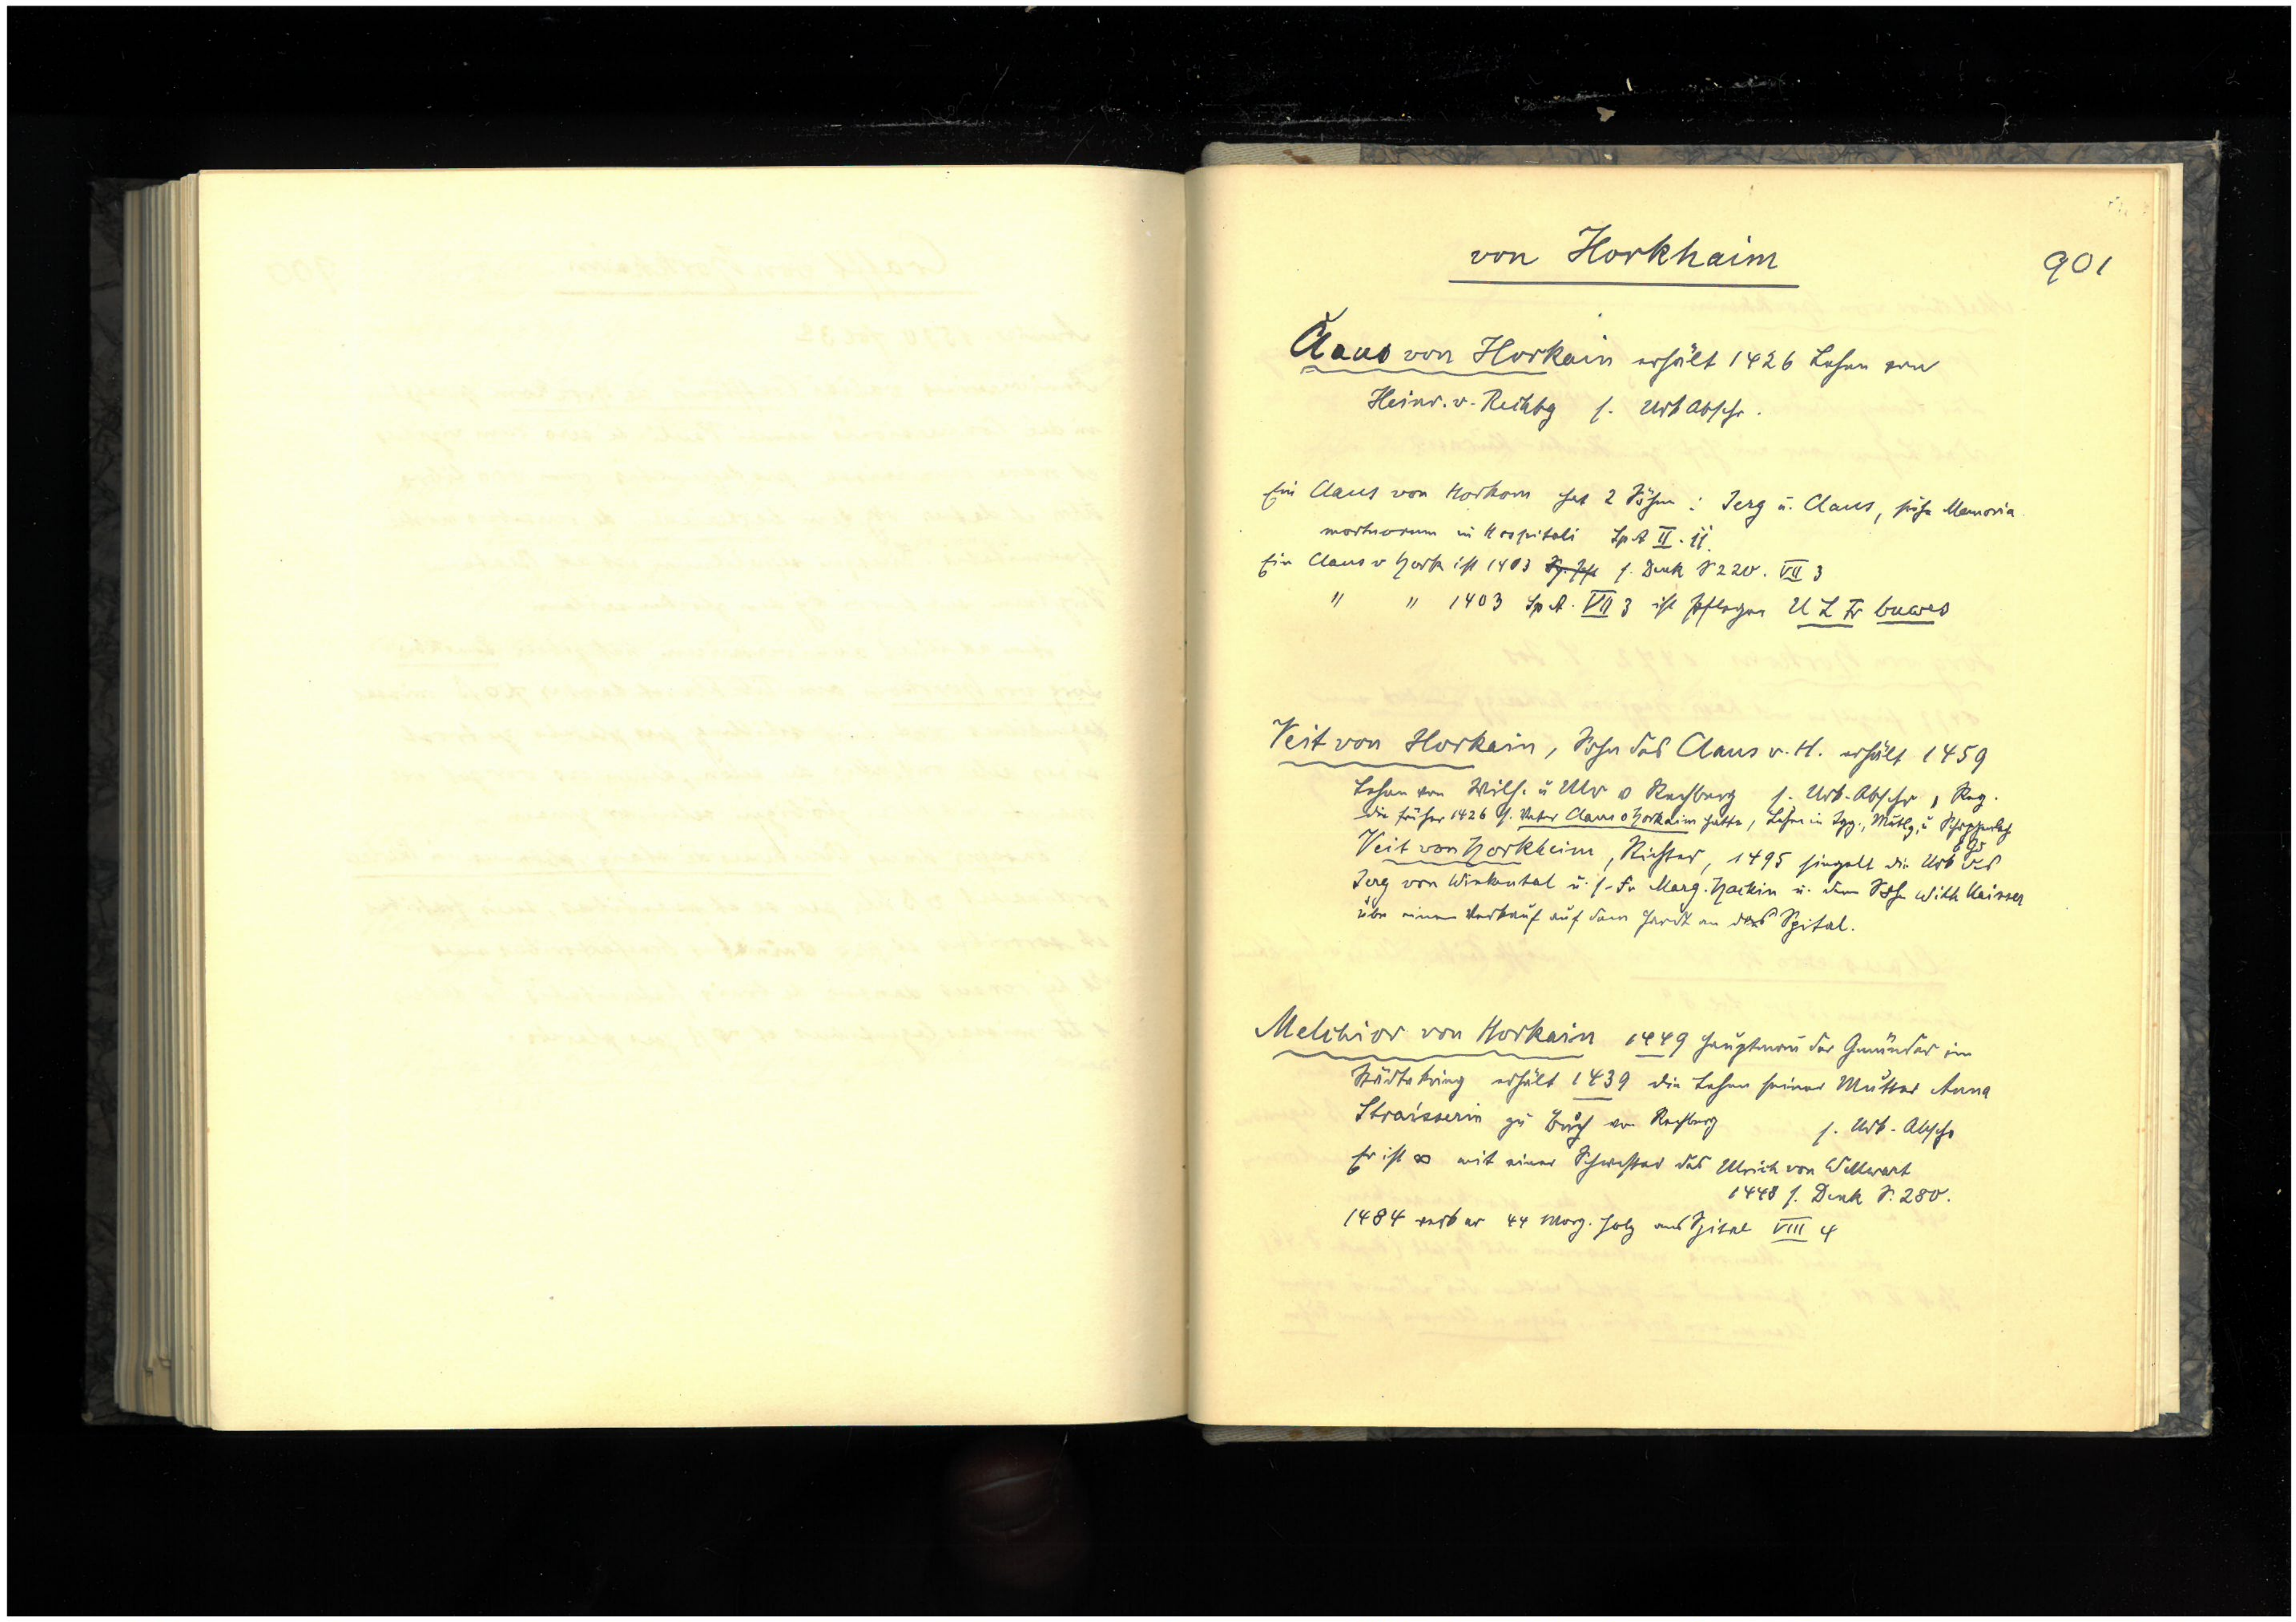 von Horkhaim
901
Claus von Horkain erhält 1426 Lehen von
Heinr. v. Rechbg s. Urk Abschr.
Ein Claus von Horkom hat 2 Söhne: Jerg u. Claus, siehe Memoria
mortuorum in Hospitali SpA II. 11.
Ein Claus v Hork ist 1403 s. Denk S 220. VII 3
" " 1403 Sp A. VII 3 ist Pfleger U L Fr buwes
Veit von Horkain, Sohn des Claus v. H. erhält 1459
Lehen von Wilh. u Ulr v Rechberg s. Urk-Abschr, Reg.
die früher 1426 s. Vater Claus v Horkaim hatte, Lehen in Igg., Mutlg, u
Veit von Horkheim, Richter, 1495 siegelt die Urk des
Jerg von Winkental u. s. Fr Marg. Hackin u. dem Sohn With Kaisser
über einen Verkauf auf dem Hardt an das Spital.
Melchior von Horkain 1449 Hauptmann der Gmünder im
Städtekrieg erhält 1439 die Lehen seiner Mutter Anna
Straisserin zu Buch von Rechberg s. Urk-Abschr
Er ist ∞ mit einer Schwester des Ulrich von Wellwart
1448 s. Denk S. 280.
1484 verk er 44 Morg. Holz ans Spital VIII 4